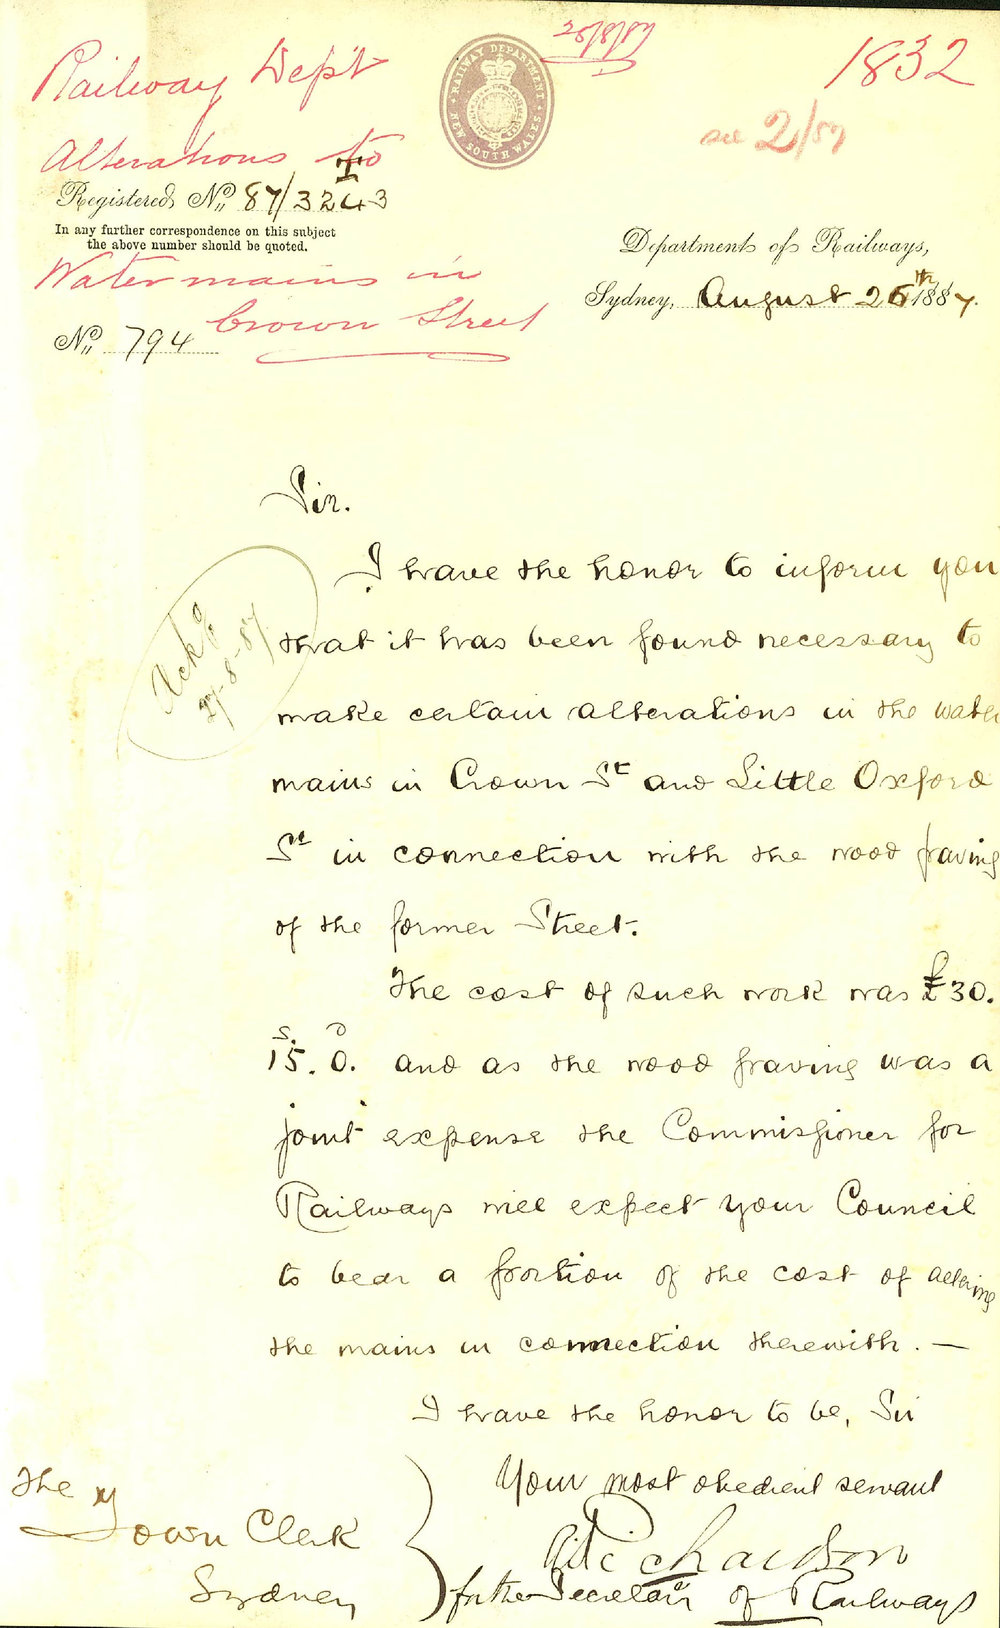 Railway Dept
26/8/87
1832
see 2/87
RAILWAY DEPARTMENT
NEW SOUTH WALES
Alterations to
T
Registered No. 87/3243
In any further correspondence on this subject
the above number should be quoted.
Watermains in
Crown Street
No. 794
Department of Railways,
Sydney, August 26th 1887.
Sir.
I have the honor to inform you
that it has been found necessary to
make certain alterations in the water
mains in Crown St and Little Oxford
St in connection with the wood paving
of the former Street.
The cost of such work was £30.
s. d
15. 0. and as the wood paving was a
joint expense the Commissioner for
Railways will expect your Council
to bear a portion of the cost of altering
the mains in connection therewith. —
Ackd
27-8-87
I have the honor to be, Sir
Your most obedient servant
Richardson
for the Secretary of Railways
The
Town Clerk
Sydney